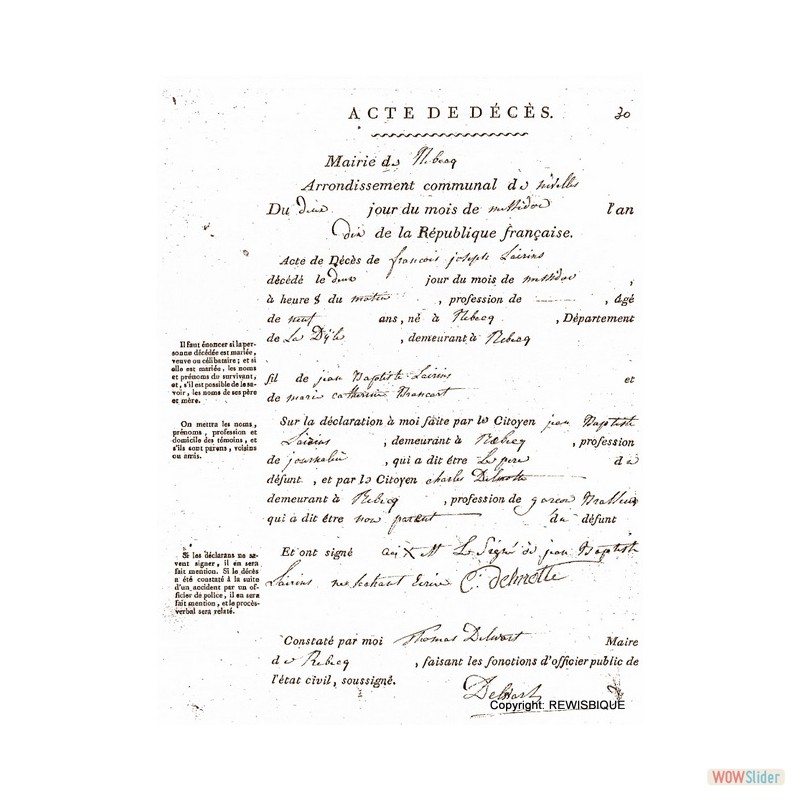 ACTE DE DÉCÈS. 30
Mairie de Rebecq
Arrondissement communal de nivelles
Du deux jour du mois de messidor l'an
dix de la République française.
Acte de Décès de francois joseph Lairins
décédé le deux jour du mois de messidor ,
à heure 8 du matin , profession de , âgé
de neuf ans, né à Rebecq , Département
de La Dÿle , demeurant à Rebecq
Il faut énoncer si la per-
sonne décédée est mariée,
veuve ou célibataire; et si
elle est mariée, les noms
et prénoms du survivant,
et, s'il est possible de le sa-
voir, les noms de ses père
et mère.
fil de jean Baptiste Lairins et
de marie catherine Brancart
On mettra les noms,
prénoms, profession et
domicile des témoins, et
s'ils sont parens, voisins
ou amis.
Sur la déclaration à moi faite par le Citoyen jean Baptiste
Lairins , demeurant à Rebecq , profession
de journalier , qui a dit être Le pere de
défunt , et par le Citoyen charles Delmotte
demeurant à Rebecq , profession de garcon Brasseur
qui a dit être non parent du défunt
Si les déclarans ne sa-
vent signer, il en sera
fait mention. Si le décès
a été constaté à la suite
d'un accident par un of-
ficier de police, il en sera
fait mention, et le procès-
verbal sera relaté.
Et ont signé X Le Signé de jean Baptiste
Lairins ne sachant Ecrire C: Delmotte
Constaté par moi Thomas Delwart Maire
de Rebecq , faisant les fonctions d'officier public de
l'état civil, soussigné.
Delwart
Copyright: REWISBIQUE
WOWSlider